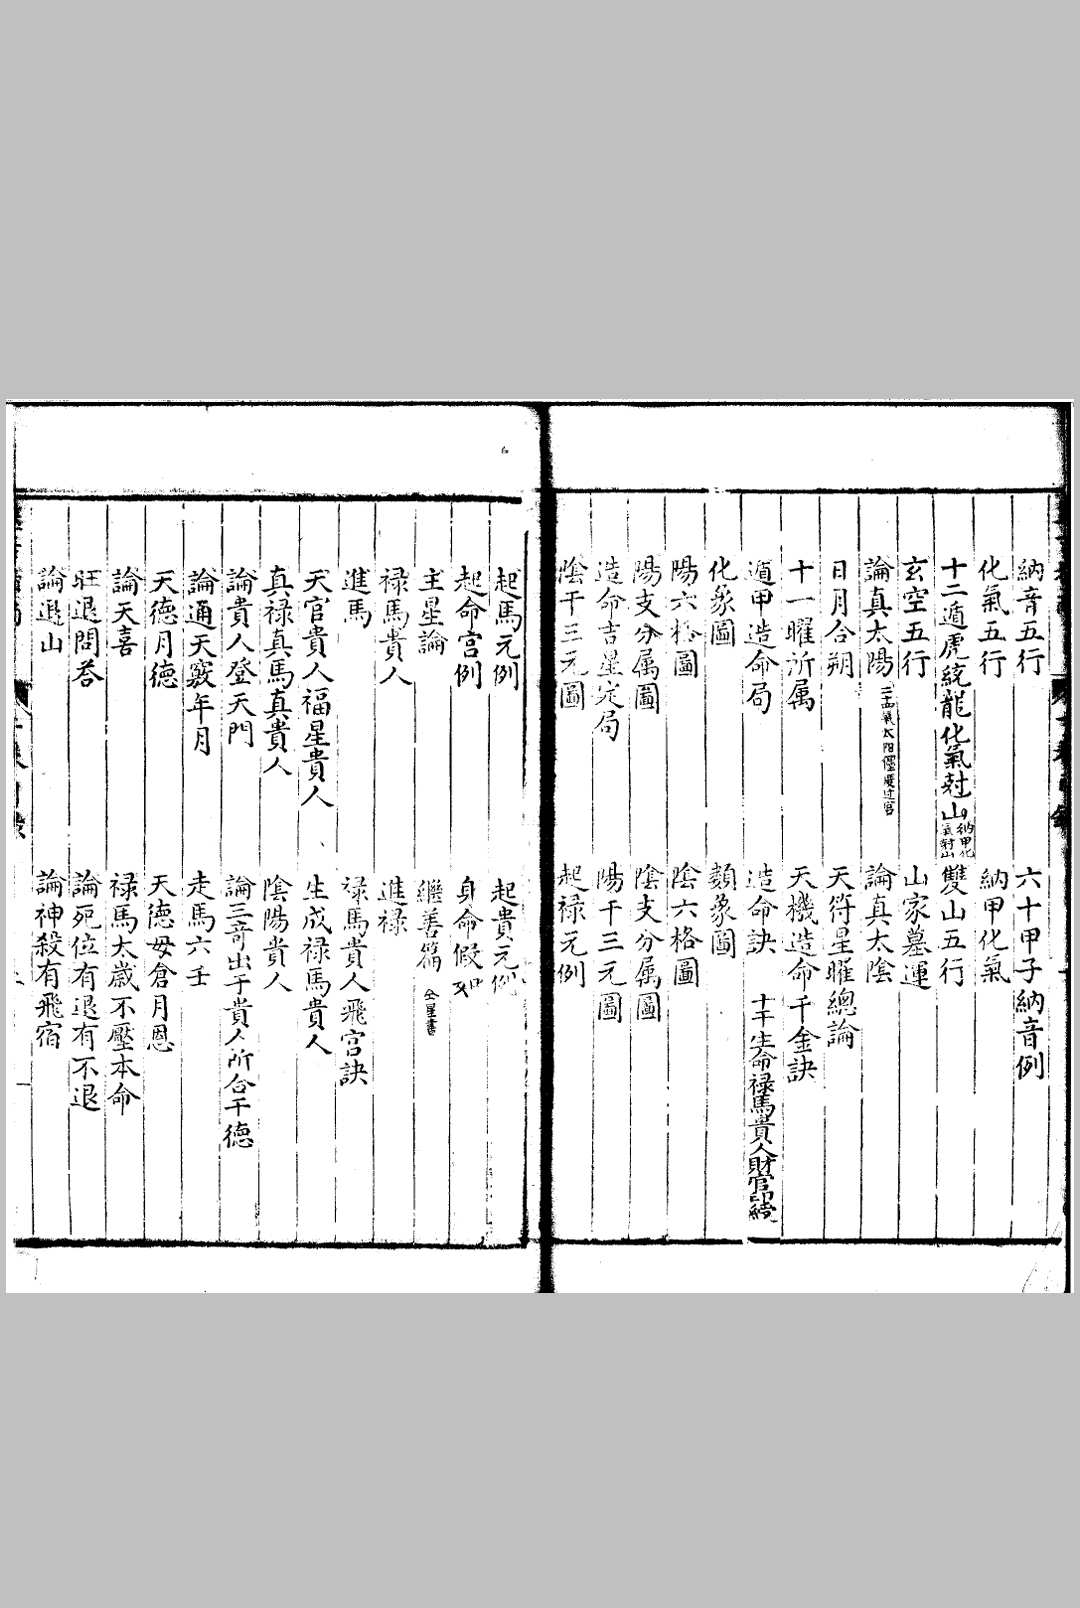 納音五行　六十甲子納音例
化氣五行　納甲化氣
十二遁虎統龍化氣尅山納甲化氣尅山　雙山五行
玄空五行　山家墓運
論真太陽　論真太陰
日月合朔　天符星曜總論
十一曜所属　天機造命千金訣
遁甲造命局　造命訣　十干生命禄馬貴人財官印綬
化象圖　類象圖
陽六格圖　陰六格圖
陽支分属圖　陰支分属圖
造命吉星定局　陽干三元圖
陰干三元圖　起禄元例
起馬元例　起貴元例
起命宮例　身命假如
主星論　繼善篇
禄馬貴人　進禄
進馬　禄馬貴人飛宮訣
天官貴人福星貴人　生成禄馬貴人
真禄真馬真貴人　陰陽貴人
論貴人登天門　論三奇出于貴人所合干德
論通天竅年月　走馬六壬
天德月德　天德毋倉月恩
論天喜　禄馬太歲不壓本命
旺退問荅　論死位有退有不退
論退山　論神殺有飛宿